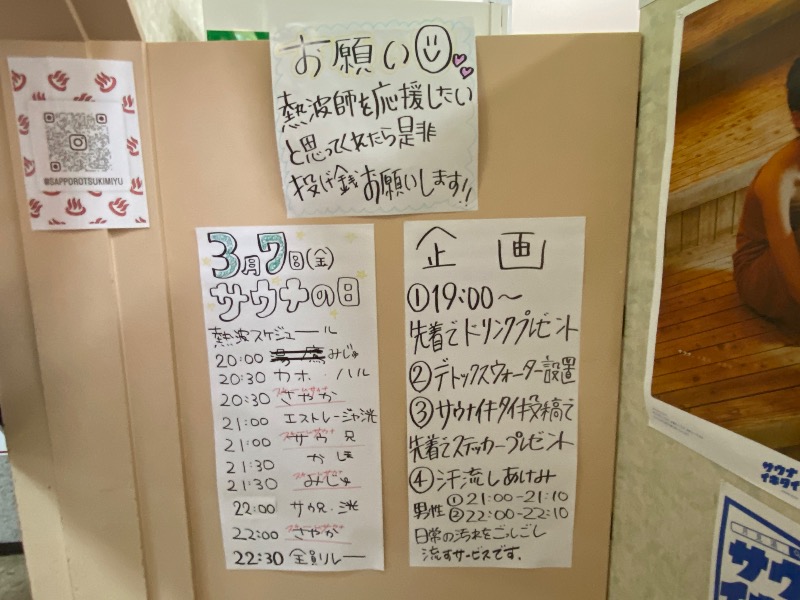 お願い
熱波師を応援したい
と思ってくれたら是非
投げ銭お願いします!!
@SAPPOROTSUKIMIYU
3月7日(金)
サウナの日
熱波スケジュール
20:00 みじゅ
20:30 カホ・ハル
20:30 さやか
21:00 エストレージャ洸
21:00 サウ兄
21:30 かほ
21:30 みじゅ
22:00 サウ兄・洸
22:00 さやか
22:30 全員リレー
企画
①19:00〜
先着でドリンクプレゼント
②デトックスウォーター設置
③サウナイキタイ投稿で
先着でステッカープレゼント
④汗流しあけみ
男性 ①21:00-21:10
②22:00-22:10
日常の汚れをごしごし
流すサービスです。
サウナ
イキタイ
サウ
イキ